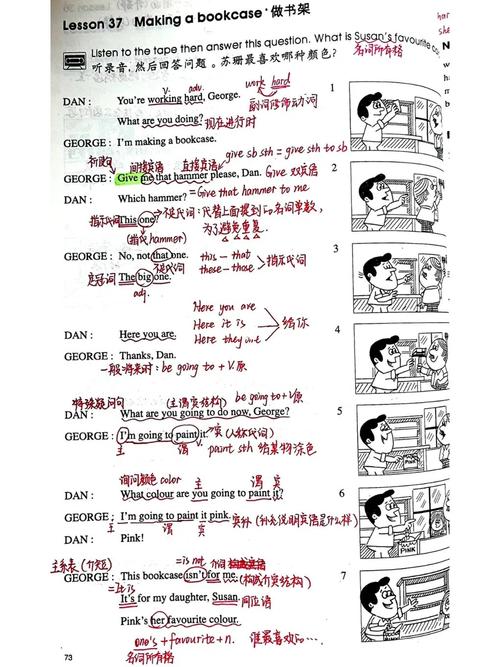 Lesson 37 Making a bookcase · 做书架
Listen to the tape then answer this question. What is Susan's favourite co
听录音,然后回答问题。苏珊最喜欢哪种颜色? 名词所有格
v. adv. work hard
DAN: You're working hard, George. 副词修饰动词 1
What are you doing? 现在进行时
GEORGE: I'm making a bookcase.
祈使句 间接宾语 直接宾语 give sb sth = give sth to sb
GEORGE: Give me that hammer please, Dan. Give 双宾语 2
DAN: Which hammer? = Give that hammer to me
指示代词 This one? 不定代词:代替上面提到的名词单数,
(指代hammer) 为了避免重复.
GEORGE: No, not that one. this — that 3
不定代词 these — those 指示代词
定冠词 The big one.
adj.
Here you are
Here it is 给你
DAN: Here you are. Here they are 4
GEORGE: Thanks, Dan.
一般将来时: be going to + V.原
特殊疑问句 (主谓宾结构) be going to + V原
DAN: What are you going to do now, George? 5
GEORGE: I'm going to paint it. 宾 (人称代词)
主 谓 paint sth 给某物涂色
询问颜色 color 主 谓 宾
DAN: What colour are you going to paint it? 6
GEORGE: I'm going to paint it pink. 宾补 (补充说明宾语是什么样)
主 谓 宾
DAN: Pink!
主系表 (介短) = is not 介词
GEORGE: This bookcase isn't for me. (构成介宾结构) 7
= It is
It's for my daughter, Susan. 同位语
Pink's her favourite colour.
one's + favourite + n. 谁最喜欢的…
73 名词所有格